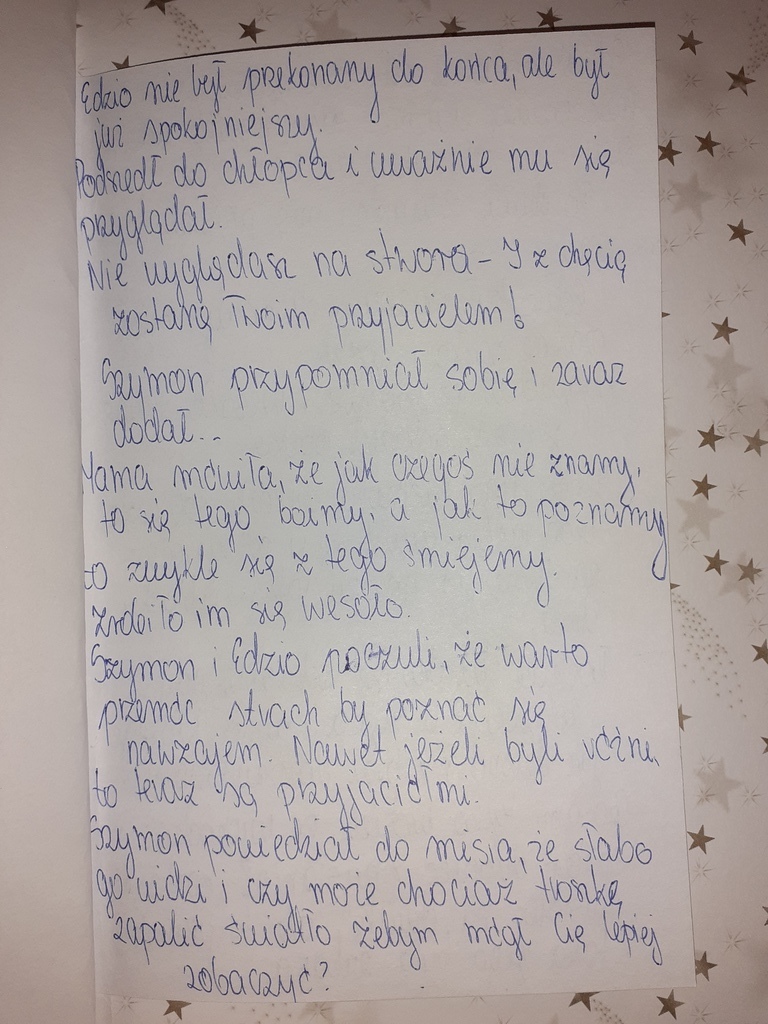 Edzio nie był przekonany do końca, ale był
już spokojniejszy.
Podszedł do chłopca i uważnie mu się
przyglądał.
Nie wyglądasz na stwora - I z chęcią
zostanę Twoim przyjacielem!
Szymon przypomniał sobię i zaraz
dodał...
Mama mówiła, że jak czegoś nie znamy,
to się tego boimy, a jak to poznamy
to zwykle się z tego śmiejemy.
Zrobiło im się wesoło.
Szymon i Edzio poczuli, że warto
przemóc strach by poznać się
nawzajem. Nawet jeżeli byli różni,
to teraz są przyjaciółmi.
Szymon powiedział do misia, że słabo
go widzi i czy może chociaż troszkę
zapalić światło żebym mógł Cię lepiej
zobaczyć?